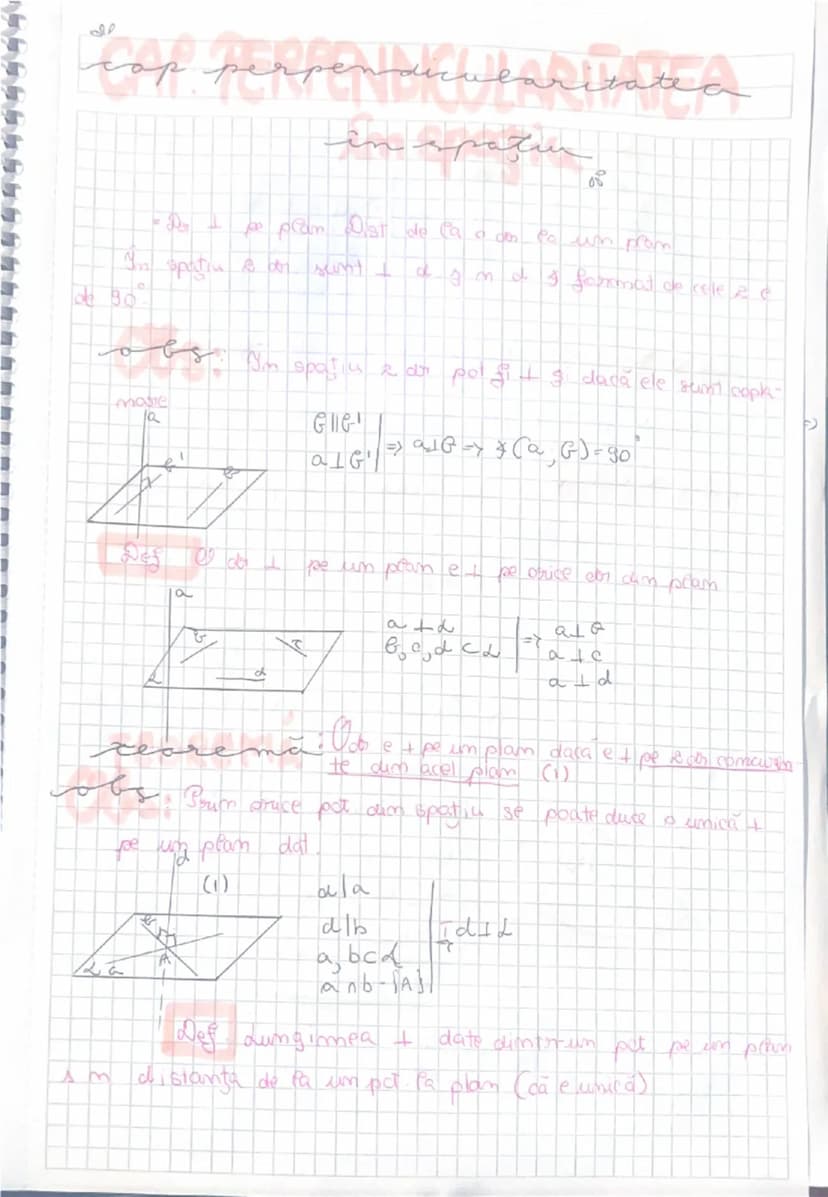 CAP. PERPENDICULARITATEA
cap perpendicularitatea
în spațiu
- Dr ⊥ pe plan Dist de la o dr la un plan
În spațiu 2 dr sunt ⊥ d și n d format de cele 2 e
de 90°
obs: În spațiu 2 dr pot fi ⊥ și dacă ele sunt copla-
nare
a
b' b
b||b'
a⊥b' | => a⊥b => ∢(a, b) = 90°
=>
Def O dr ⊥ pe un plan e ⊥ pe orice dr din plan
a
b c
d
α
a ⊥ α
b, c, d ⊂ α | => a⊥b
a ⊥ c
a ⊥ d
teoremă: O dr e ⊥ pe un plan dacă e ⊥ pe 2 dr concuren
te din acel plan (1)
obs: Prin orice pct din spațiu se poate duce o unică ⊥
pe un plan dat.
d
(1)
b
A
α a
d⊥a
d⊥b
a, b⊂α
a ∩ b = {A} | T=> d⊥α
Def. Lungimea ⊥ date dintr-un pct pe un plan
s n distanța de la un pct la plan (că e unică)